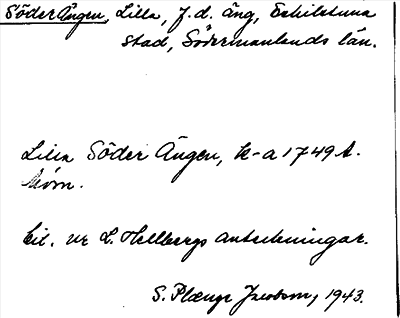 Söder Ängen, Lilla, f.d. äng, Eskilstuna
stad, Södermanlands län.
Lilla Söder Ängen, k-a 1749 A.
Cit. ur L. Hellbergs anteckningar.
S. Plænge Jacobson, 1943.